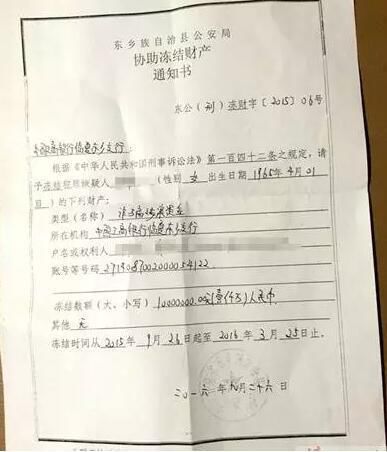 东乡族自治县公安局
协助冻结财产
通知书
东公(刑)冻财字〔2015〕06号
中国工商银行临夏东乡支行:
根据《中华人民共和国刑事诉讼法》第一百四十二条之规定,请
予冻结犯罪嫌疑人 (性别 女 出生日期 1965年4月01
日)的下列财产:
类型(名称)涉案资金
所在机构 中国工商银行临夏东乡支行
户名或权利人
账号等号码
冻结数额(大、小写)10000000.00元(壹仟万)人民币
其他 无
冻结时间从2015年9月26日起至2016年3月25日止。
二〇一 年九月二十六日